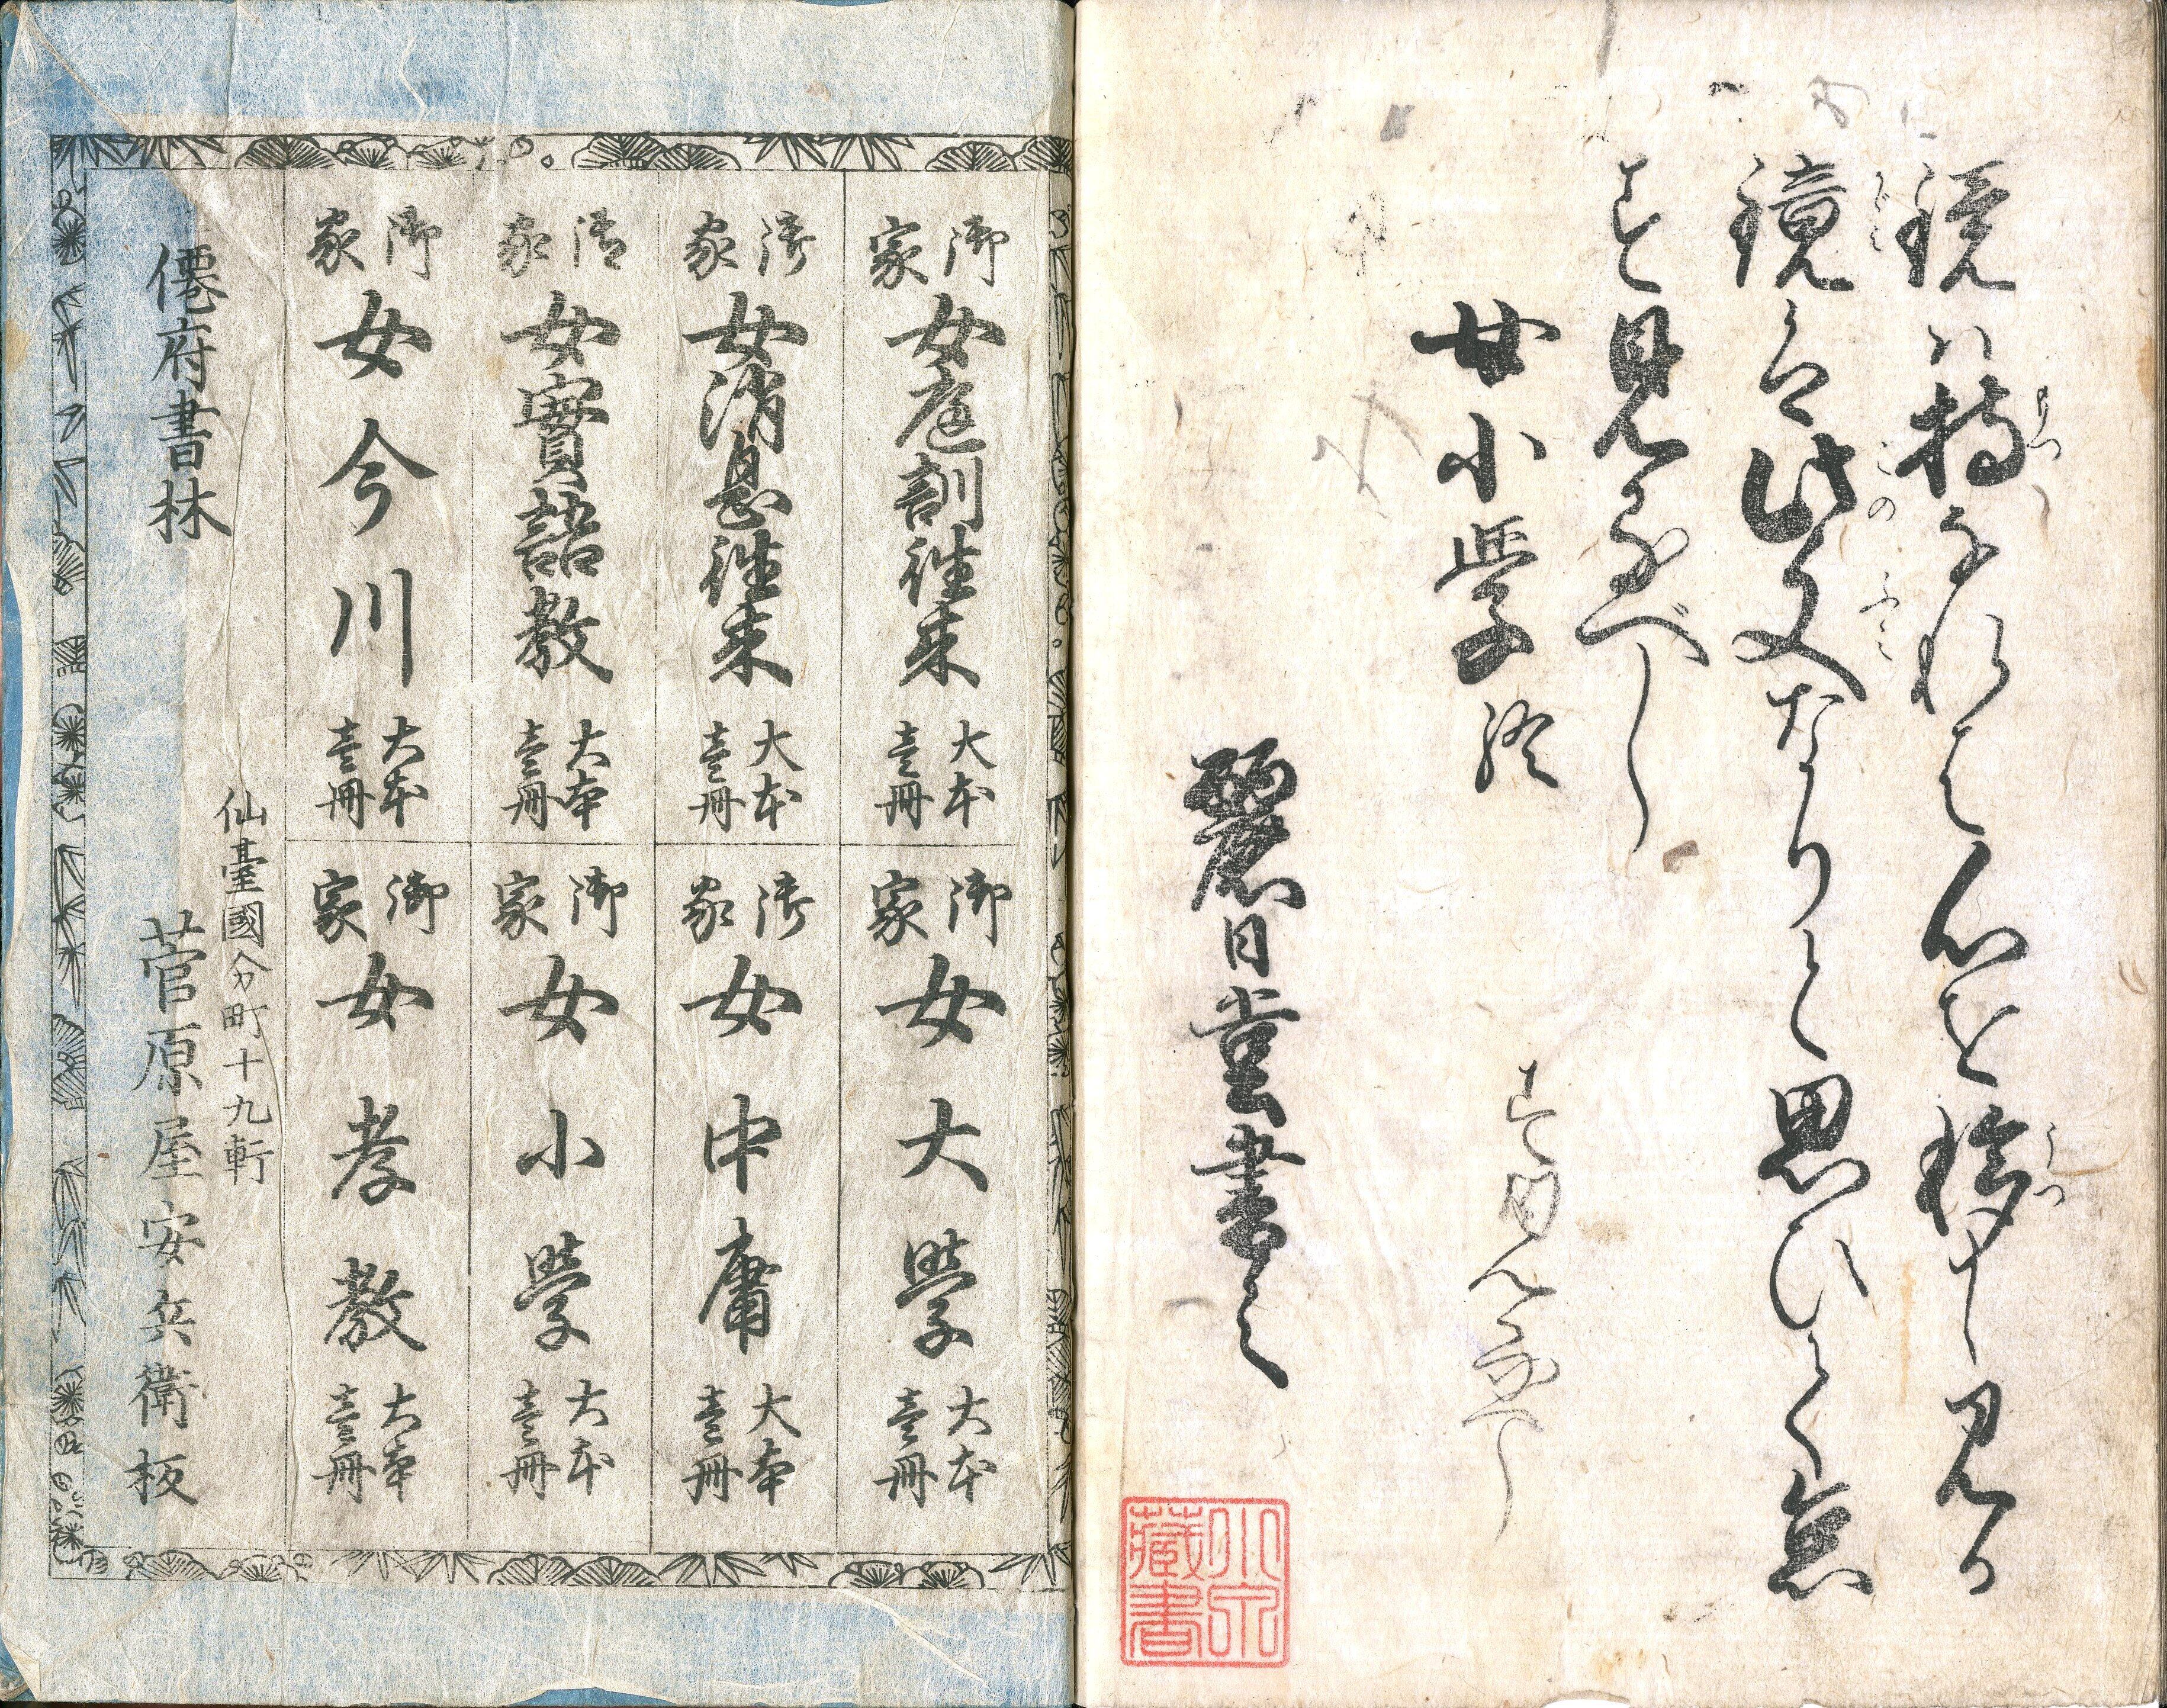 鏡ハ持なれども心を移し見る
鏡ハ此文なりと思ひて怠
らず見るべし
女小学終
麗日堂書之
御家 女庭訓往来 大本壹冊
御家 女大學 大本壹冊
御家 女消息往来 大本壹冊
御家 女中庸 大本壹冊
御家 女實語教 大本壹冊
御家 女小學 大本壹冊
御家 女今川 大本壹冊
御家 女孝教 大本壹冊
仙臺國分町十九軒
僊府書林 菅原屋安兵衛板